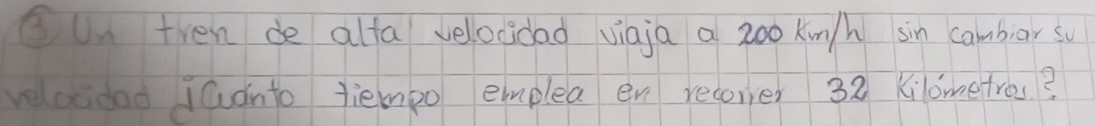 ③ Un tren de alta velocidad viaja a 200 km/h sin cambiar su
velocidad ¿Cuánto tiempo emplea en recorrer 32 Kilómetros?